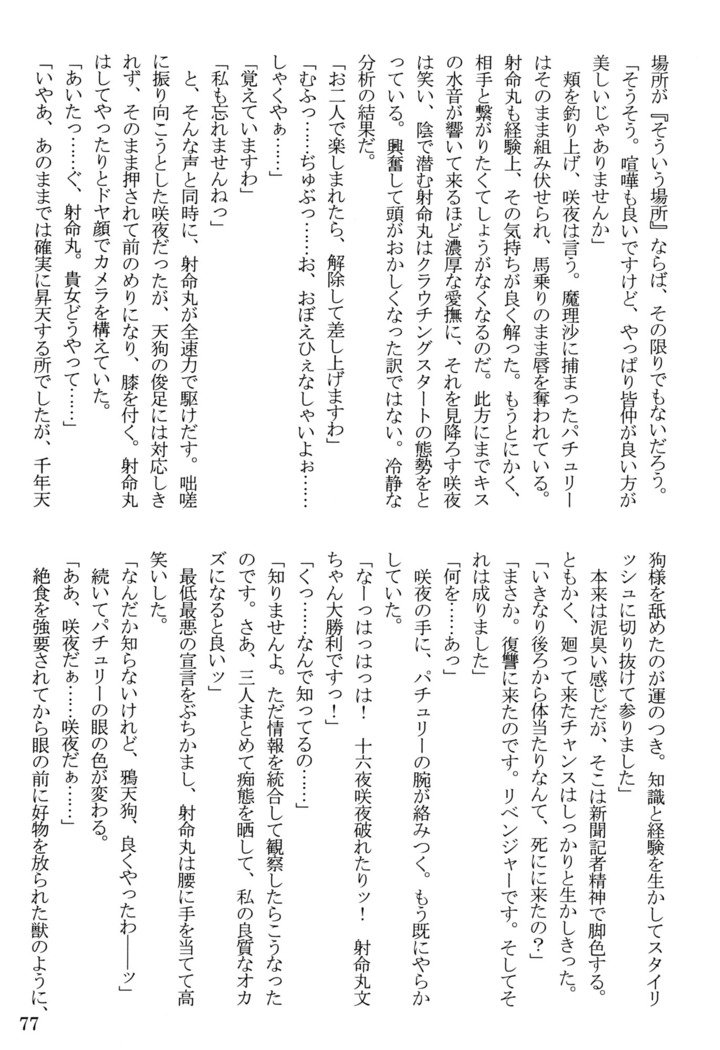 場所が『そういう場所』ならば、その限りでもないだろう。
「そうそう。喧嘩も良いですけど、やっぱり皆仲が良い方が
美しいじゃありませんか」
　頬を釣り上げ、咲夜は言う。魔理沙に捕まったパチュリー
はそのまま組み伏せられ、馬乗りのまま唇を奪われている。
射命丸も経験上、その気持ちが良く解った。もうとにかく、
相手と繋がりたくてしょうがなくなるのだ。此方にまでキス
の水音が響いて来るほど濃厚な愛撫に、それを見降ろす咲夜
は笑い、陰で潜む射命丸はクラウチングスタートの態勢をと
っている。興奮して頭がおかしくなった訳ではない。冷静な
分析の結果だ。
「お二人で楽しまれたら、解除して差し上げますわ」
「むふっ……ぢゅぶっ……お、おぼえひぇなしゃいよぉ……
しゃくやぁ……」
「覚えていますわ」
「私も忘れませんねっ」
　と、そんな声と同時に、射命丸が全速力で駆けだす。咄嗟
に振り向こうとした咲夜だったが、天狗の俊足には対応しき
れず、そのまま押されて前のめりになり、膝を付く。射命丸
はしてやったりとドヤ顔でカメラを構えていた。
「あいたっ……ぐ、射命丸。貴女どうやって……」
「いやあ、あのままでは確実に昇天する所でしたが、千年天
狗様を舐めたのが運のつき。知識と経験を生かしてスタイリ
ッシュに切り抜けて参りました」
　本来は泥臭い感じだが、そこは新聞記者精神で脚色する。
ともかく、廻って来たチャンスはしっかりと生かしきった。
「いきなり後ろから体当たりなんて、死にに来たの？」
「まさか。復讐に来たのです。リベンジャーです。そしてそ
れは成りました」
「何を……あっ」
　咲夜の手に、パチュリーの腕が絡みつく。もう既にやらか
していた。
「なーっはっはっは！　十六夜咲夜破れたりッ！　射命丸文
ちゃん大勝利ですっ！」
「くっ……なんで知ってるの……」
「知りませんよ。ただ情報を統合して観察したらこうなった
のです。さあ、三人まとめて痴態を晒して、私の良質なオカ
ズになると良いッ」
　最低最悪の宣言をぶちかまし、射命丸は腰に手を当てて高
笑いした。
「なんだか知らないけれど、鴉天狗、良くやったわ――ッ」
　続いてパチュリーの眼の色が変わる。
「ああ、咲夜だぁ……咲夜だぁ……」
　絶食を強要されてから眼の前に好物を放られた獣のように、
77